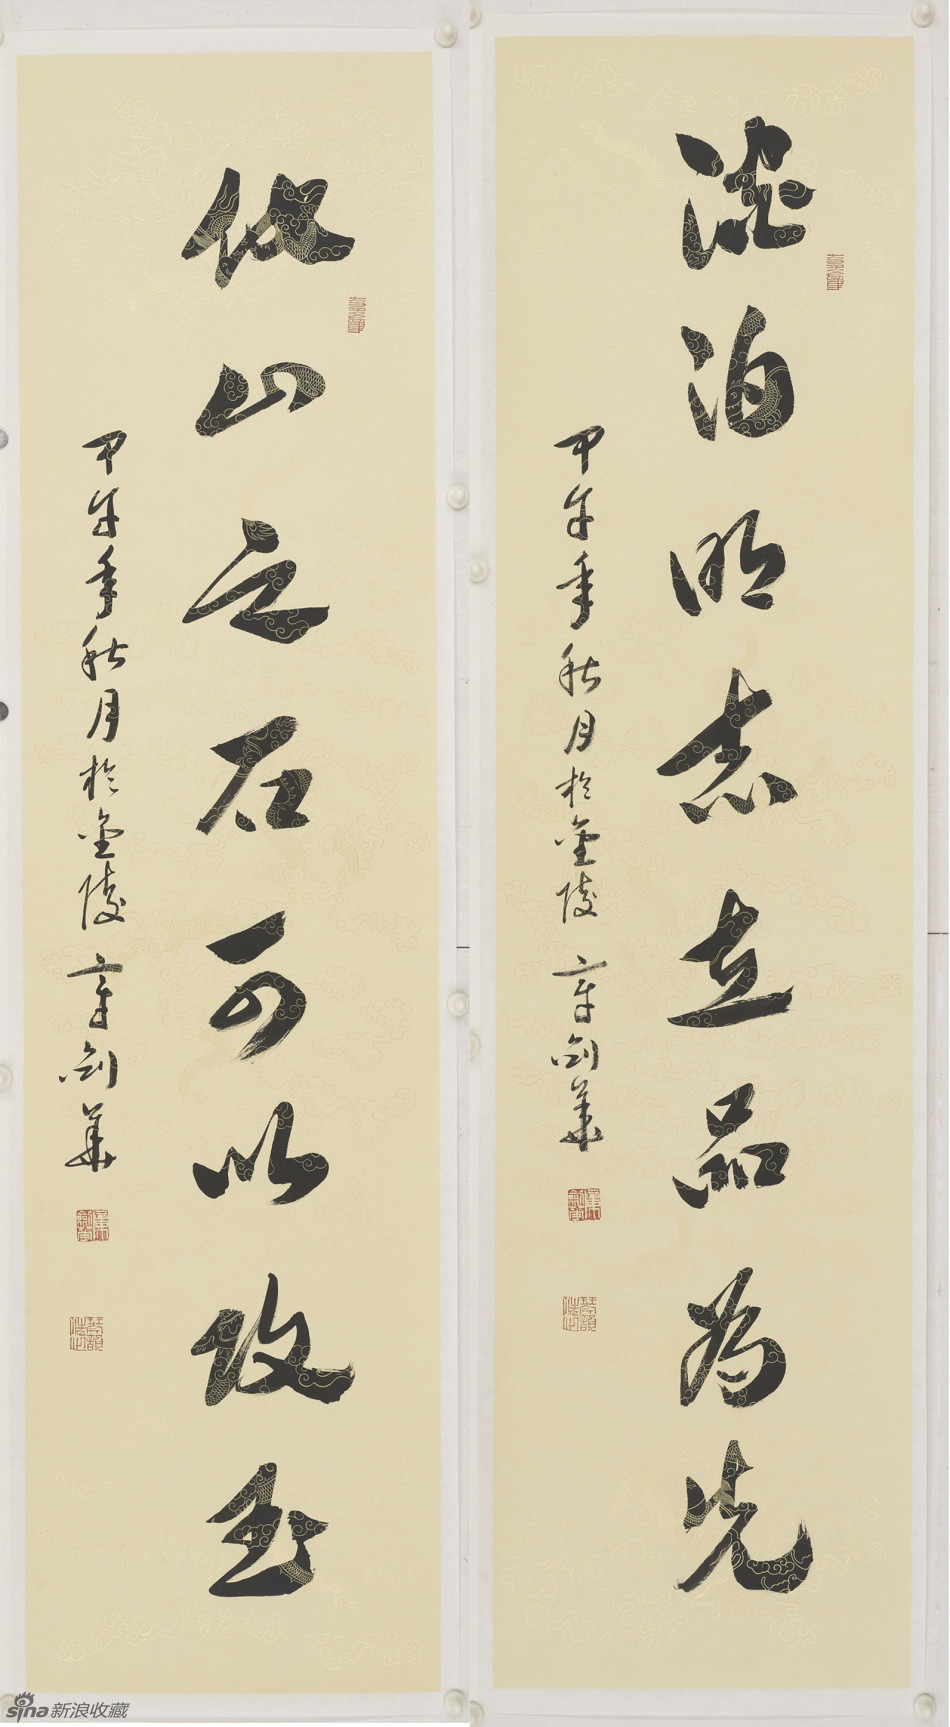 淡泊明志立品为先
甲午年秋月於金陵 章剑華
他山之石可以攻玉
甲午年秋月於金陵 章剑華
sina新浪收藏